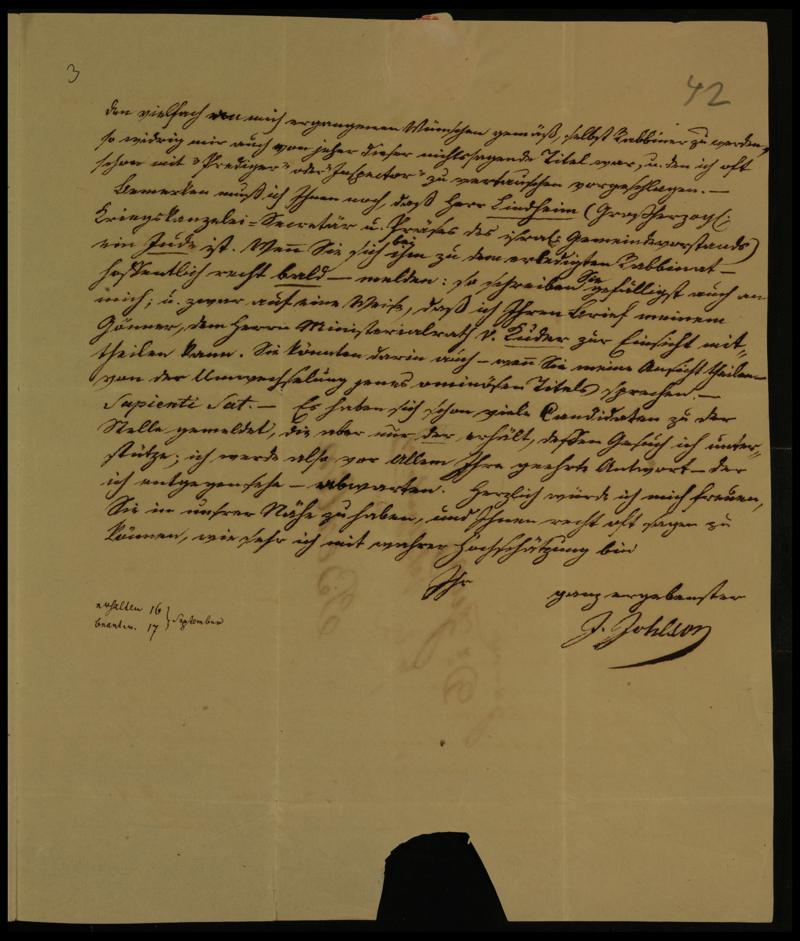 3
42
den vielfach an mich ergangenen Wünschen gemäß, selbst Rabbiner zu werden,
so widrig mir auch von jeher dieser nichtssagende Titel war, u. den ich oft
schon mit "Prediger" oder "Inspector" zu vertauschen vorgeschlagen. —
Bemerken muß ich Ihnen noch, daß Herr Lindheim (Großherzogl.
Kriegskanzelei-Secretär u. Präses des israel. Gemeindevorstands)
ein Jude ist. Wenn Sie sich bei ihm zu dem erledigten Rabbinat —
hoffentlich recht bald — melden: so schreiben Sie gefälligst auch an
mich; u. zwar auf eine Weise, daß ich Ihren Brief meinem
Gönner, dem Herrn Ministerialrath v. Linder zur Einsicht mit-
theilen kann. Sie könnten darin auch — wenn Sie meine Ansicht theilen —
von der Umwechselung jenes ominösen Titels sprechen. —
Sapienti Sat. — Es haben sich schon viele Candidaten zu der
Stelle gemeldet, die aber nur der erhält, dessen Gesuch ich unter-
stütze; ich werde also vor Allem Ihre geehrte Antwort — der
ich entgegensehe — abwarten. Herzlich würde ich mich freuen,
Sie in unsrer Nähe zu haben, und Ihnen recht oft sagen zu
können, wie sehr ich mit wahrer Hochschätzung bin
Ihr ganz ergebenster
J. Johlson
erhalten 16
beantw. 17 } September